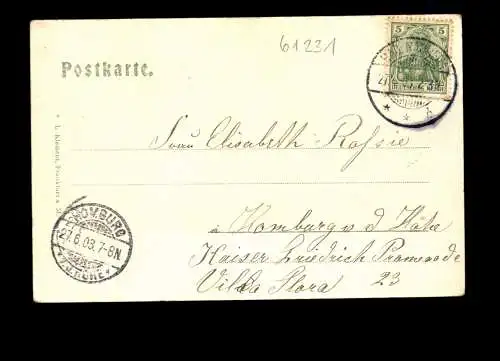 61231
5
Postkarte.
Frau Elisabeth
in Homburg v d Höhe
Kaiser Friedrich Promenade
Villa Flora 23
HOMBURG
27.6.03.7-8N.
v.d. HÖHE
L. Klement, Frankfurt a